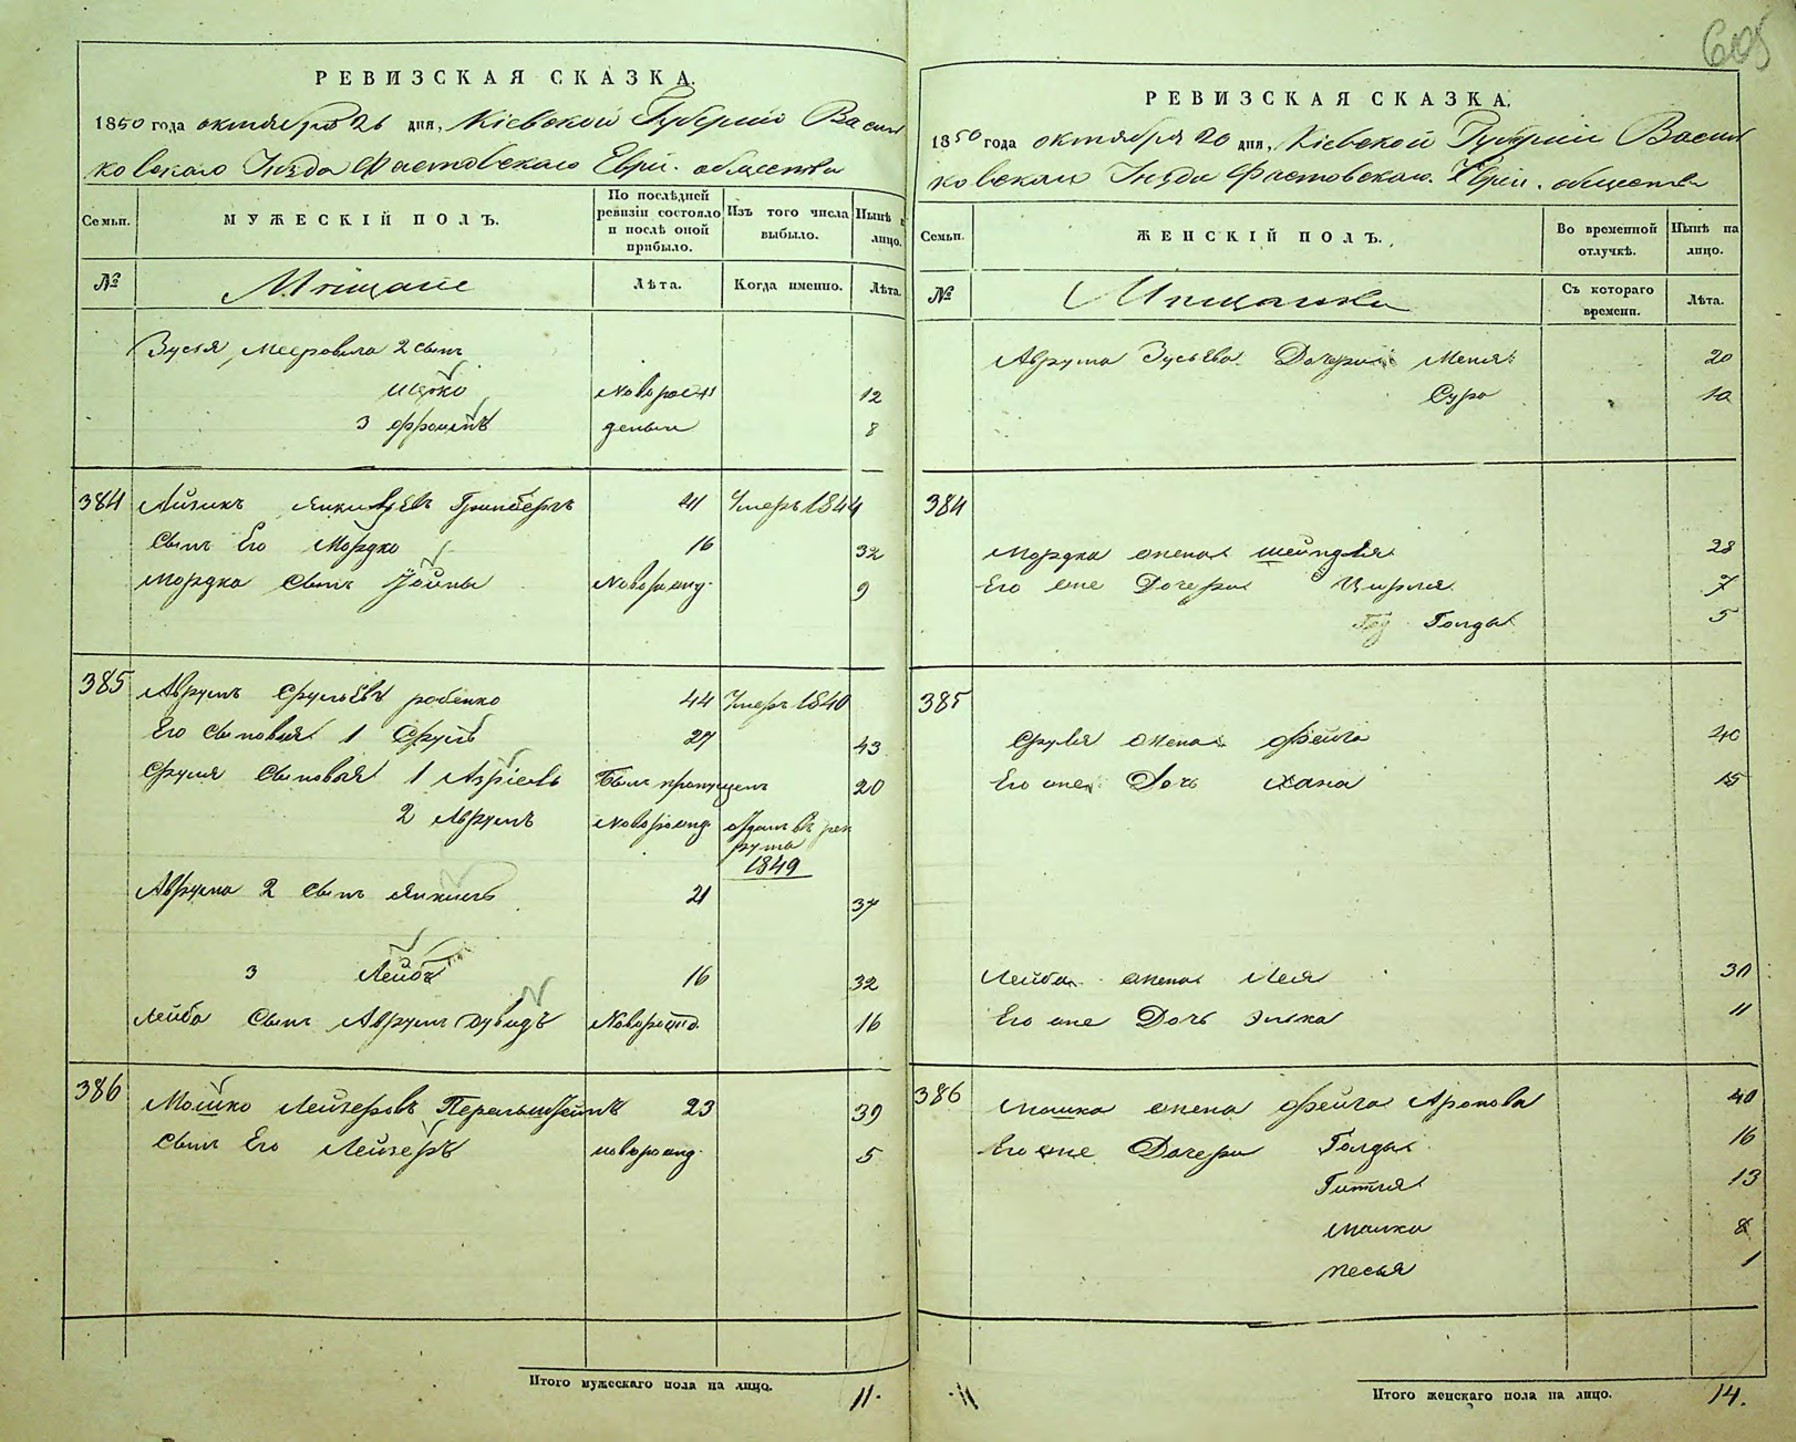 605
РЕВИЗСКАЯ СКАЗКА.
1850 года октября 26 дня, Кіевской Губерніи Василь
ковскаго Уѣзда Фастовскаго Еврей. общества
Семьи.
МУЖЕСКІЙ ПОЛЪ.
По послѣдней ревизіи состояло и послѣ оной прибыло.
Изъ того числа выбыло.
Нынѣ на лицо.
№
Мѣщане
Лѣта.
Когда именно.
Лѣта.
Зуся Мееровича 2 сынъ
Ицко новорож 12
3 Фроимъ денъ 8
384 Айзикъ Янкилевъ Гринбергъ 41 Умеръ 1844
Сынъ Его Мордко 16 32
Мордка Сынъ Йойны Новорожд. 9
385 Аврумъ Срульевъ 44 Умеръ 1840
Его Сыновья 1 Сруль 27 43
Сруля Сыновья 1 Азріель Былъ пропущенъ 20
2 Аврумъ Новорожд. Отданъ въ рек
рута
1849
Аврума 2 Сынъ Янкель 21 37
3 Лейбъ 16 32
Лейба Сынъ Аврумъ Дувидъ Новорожд. 16
386 Мошко Лейзеровъ 23 39
Сынъ Его Лейзеръ новорожд. 5
Итого мужескаго пола на лицо. 11.
РЕВИЗСКАЯ СКАЗКА.
1850 года октября 26 дня, Кіевской Губерніи Василь
ковскаго Уѣзда Фастовскаго Еврей. общества
Семьи.
ЖЕНСКІЙ ПОЛЪ.
Во временной отлучкѣ.
Нынѣ на лицо.
№
Мѣщанки
Съ котораго времени.
Лѣта.
Аврума Зусьева Дочери Меня 20
Сура 10
384
Мордка жена Шейндля 28
Его же Дочери Цирля 7
Голда 5
385
Сруля жена Фейга 40
Его же Дочь Хана 15
Лейба жена Лея 30
Его же Дочь Элька 11
386 Мошка жена Фейга Аронова 40
Его же Дочери Голда 16
Гитля 13
Малка 8
Песья 1
Итого женскаго пола на лицо. 14.